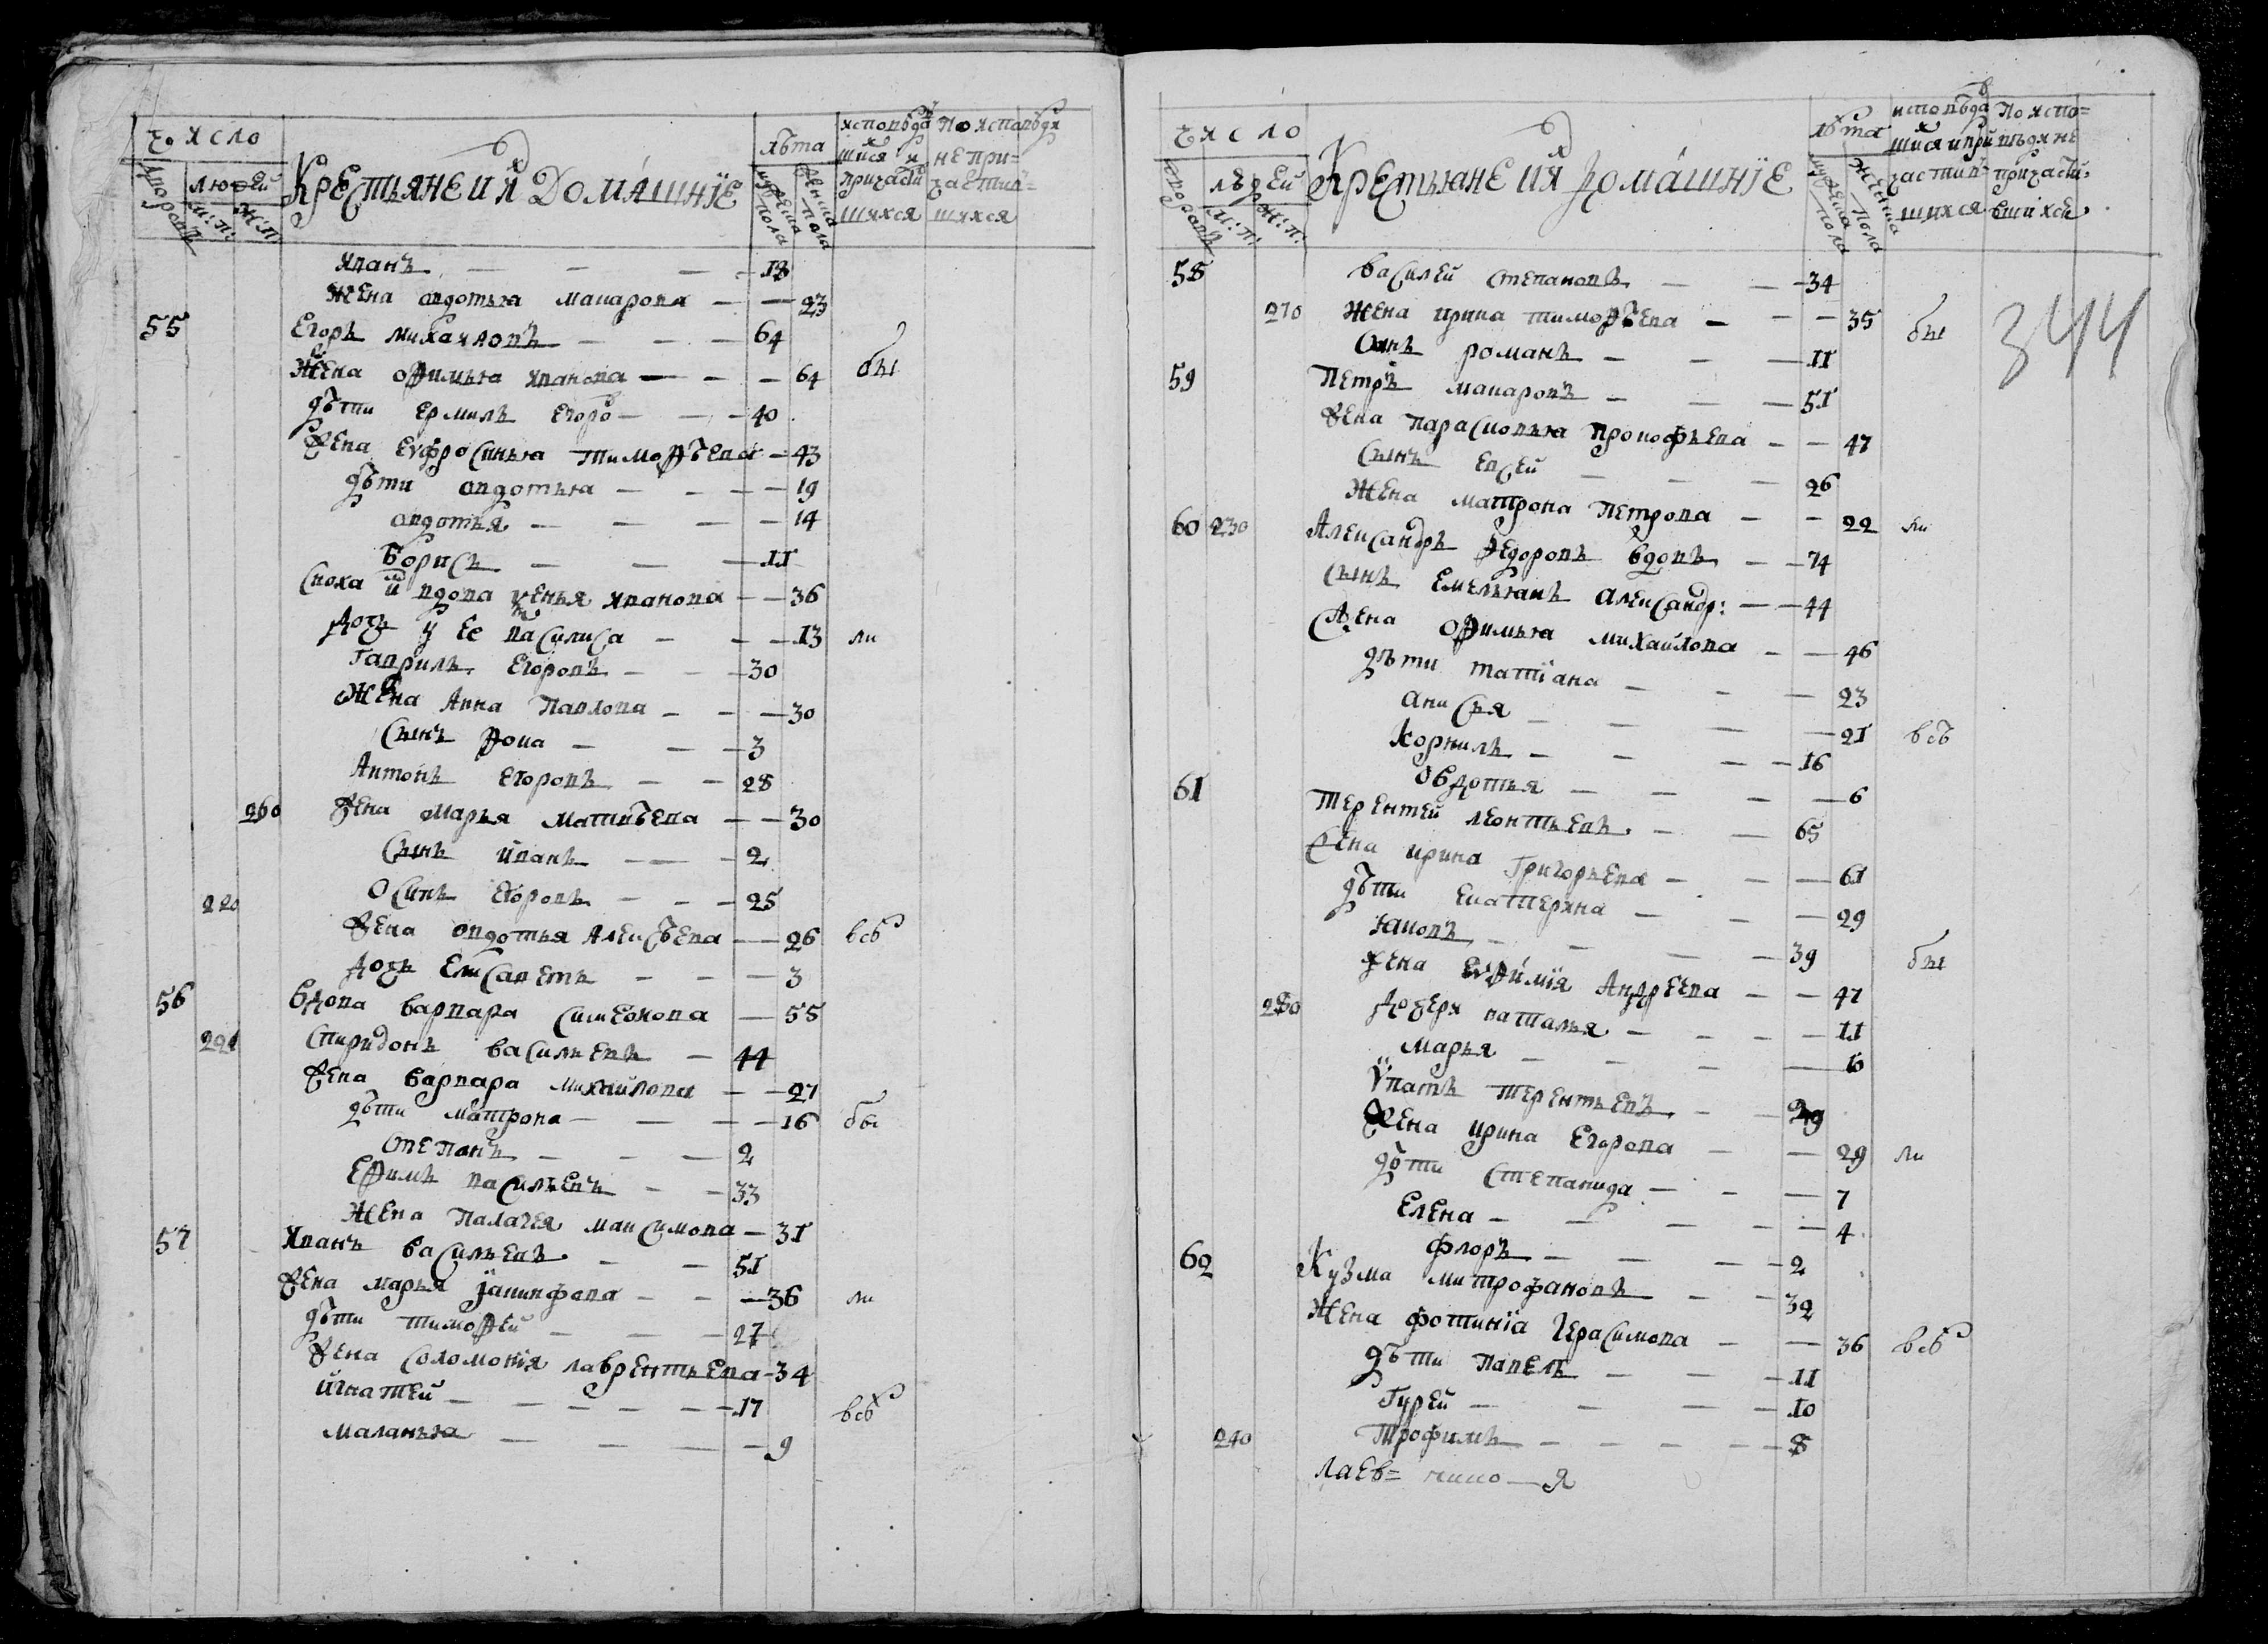 Число
людей
дворовъ
м: п:
ж: п:
Крестьяне и ихъ домашніе
лѣта
мужеска пола
женска пола
исповѣдавшихся и причастившихся
По исповѣди не причастившихся
Иванъ — 18
жена овдотья макарова — 23
55 Егоръ михаиловъ — 64
Жена офимья иванова — 64 бы
дѣти ермилъ егоро — 40
жена еуфросинья тимофѣева — 43
дѣти овдотья — 19
овдотья — 14
Борисъ — 11
сноха вдова иванова — 36
дочь у ее василиса — 13 ли
гаврилъ егоровъ — 30
жена Анна Павлова — 30
сынъ фока — 3
Антонъ егоровъ — 28
260 жена марья матвѣева — 30
сынъ иванъ — 2
220 Осипъ егоровъ — 25
жена овдотья алексѣева — 26 всѣ
дочь елисаветъ — 3
56 вдова варвара симеонова — 55
221 Спиридонъ васильевъ — 44
жена варвара михаилова — 27
дѣти матрона — 16 бы
степанъ — 2
ефимъ васильевъ — 33
жена палагея максимова — 31
57 Иванъ васильевъ — 51
жена марья іакинфова — 36 ли
дѣти тимофей — 27
жена соломонія лаврентьева — 34
игнатей — 17 всѣ
маланья — 9
Число
людей
дворовъ
м: п:
ж: п:
Крестьяне и ихъ домашніе
лѣта
мужеска пола
женска пола
исповѣдавшихся и причастившихся
По исповѣди не причастившихся
344
58 василей степановъ — 34
270 жена ирина тимофѣева — 35 бы
сынъ романъ — 11
59 Петръ макаровъ — 51
жена парасковья прокофьева — 47
сынъ евсей — 26
жена матрона петрова — 22 ли
60 230 Александръ федоровъ вдовъ — 74
сынъ емельянъ александр: — 44
жена офимья михаилова — 46
дѣти татіана — 23
анисья — 21 всѣ
корнилъ — 16
овдотья — 6
61 Терентей леонтьевъ — 65
жена ирина григорьева — 61
дѣти екатерина — 29
іаковъ — 39 бы
жена ефимія андреева — 47
280 дочери наталья — 11
марья
ѵпатъ терентьевъ — 29
жена ирина егорова — 29 ли
дѣти степанида — 7
елена — 4
флоръ — 2
62 Кузма митрофановъ — 32
жена фотинія герасимова — 36 всѣ
дѣти павелъ — 11
гурей — 10
240 трофимъ — 8